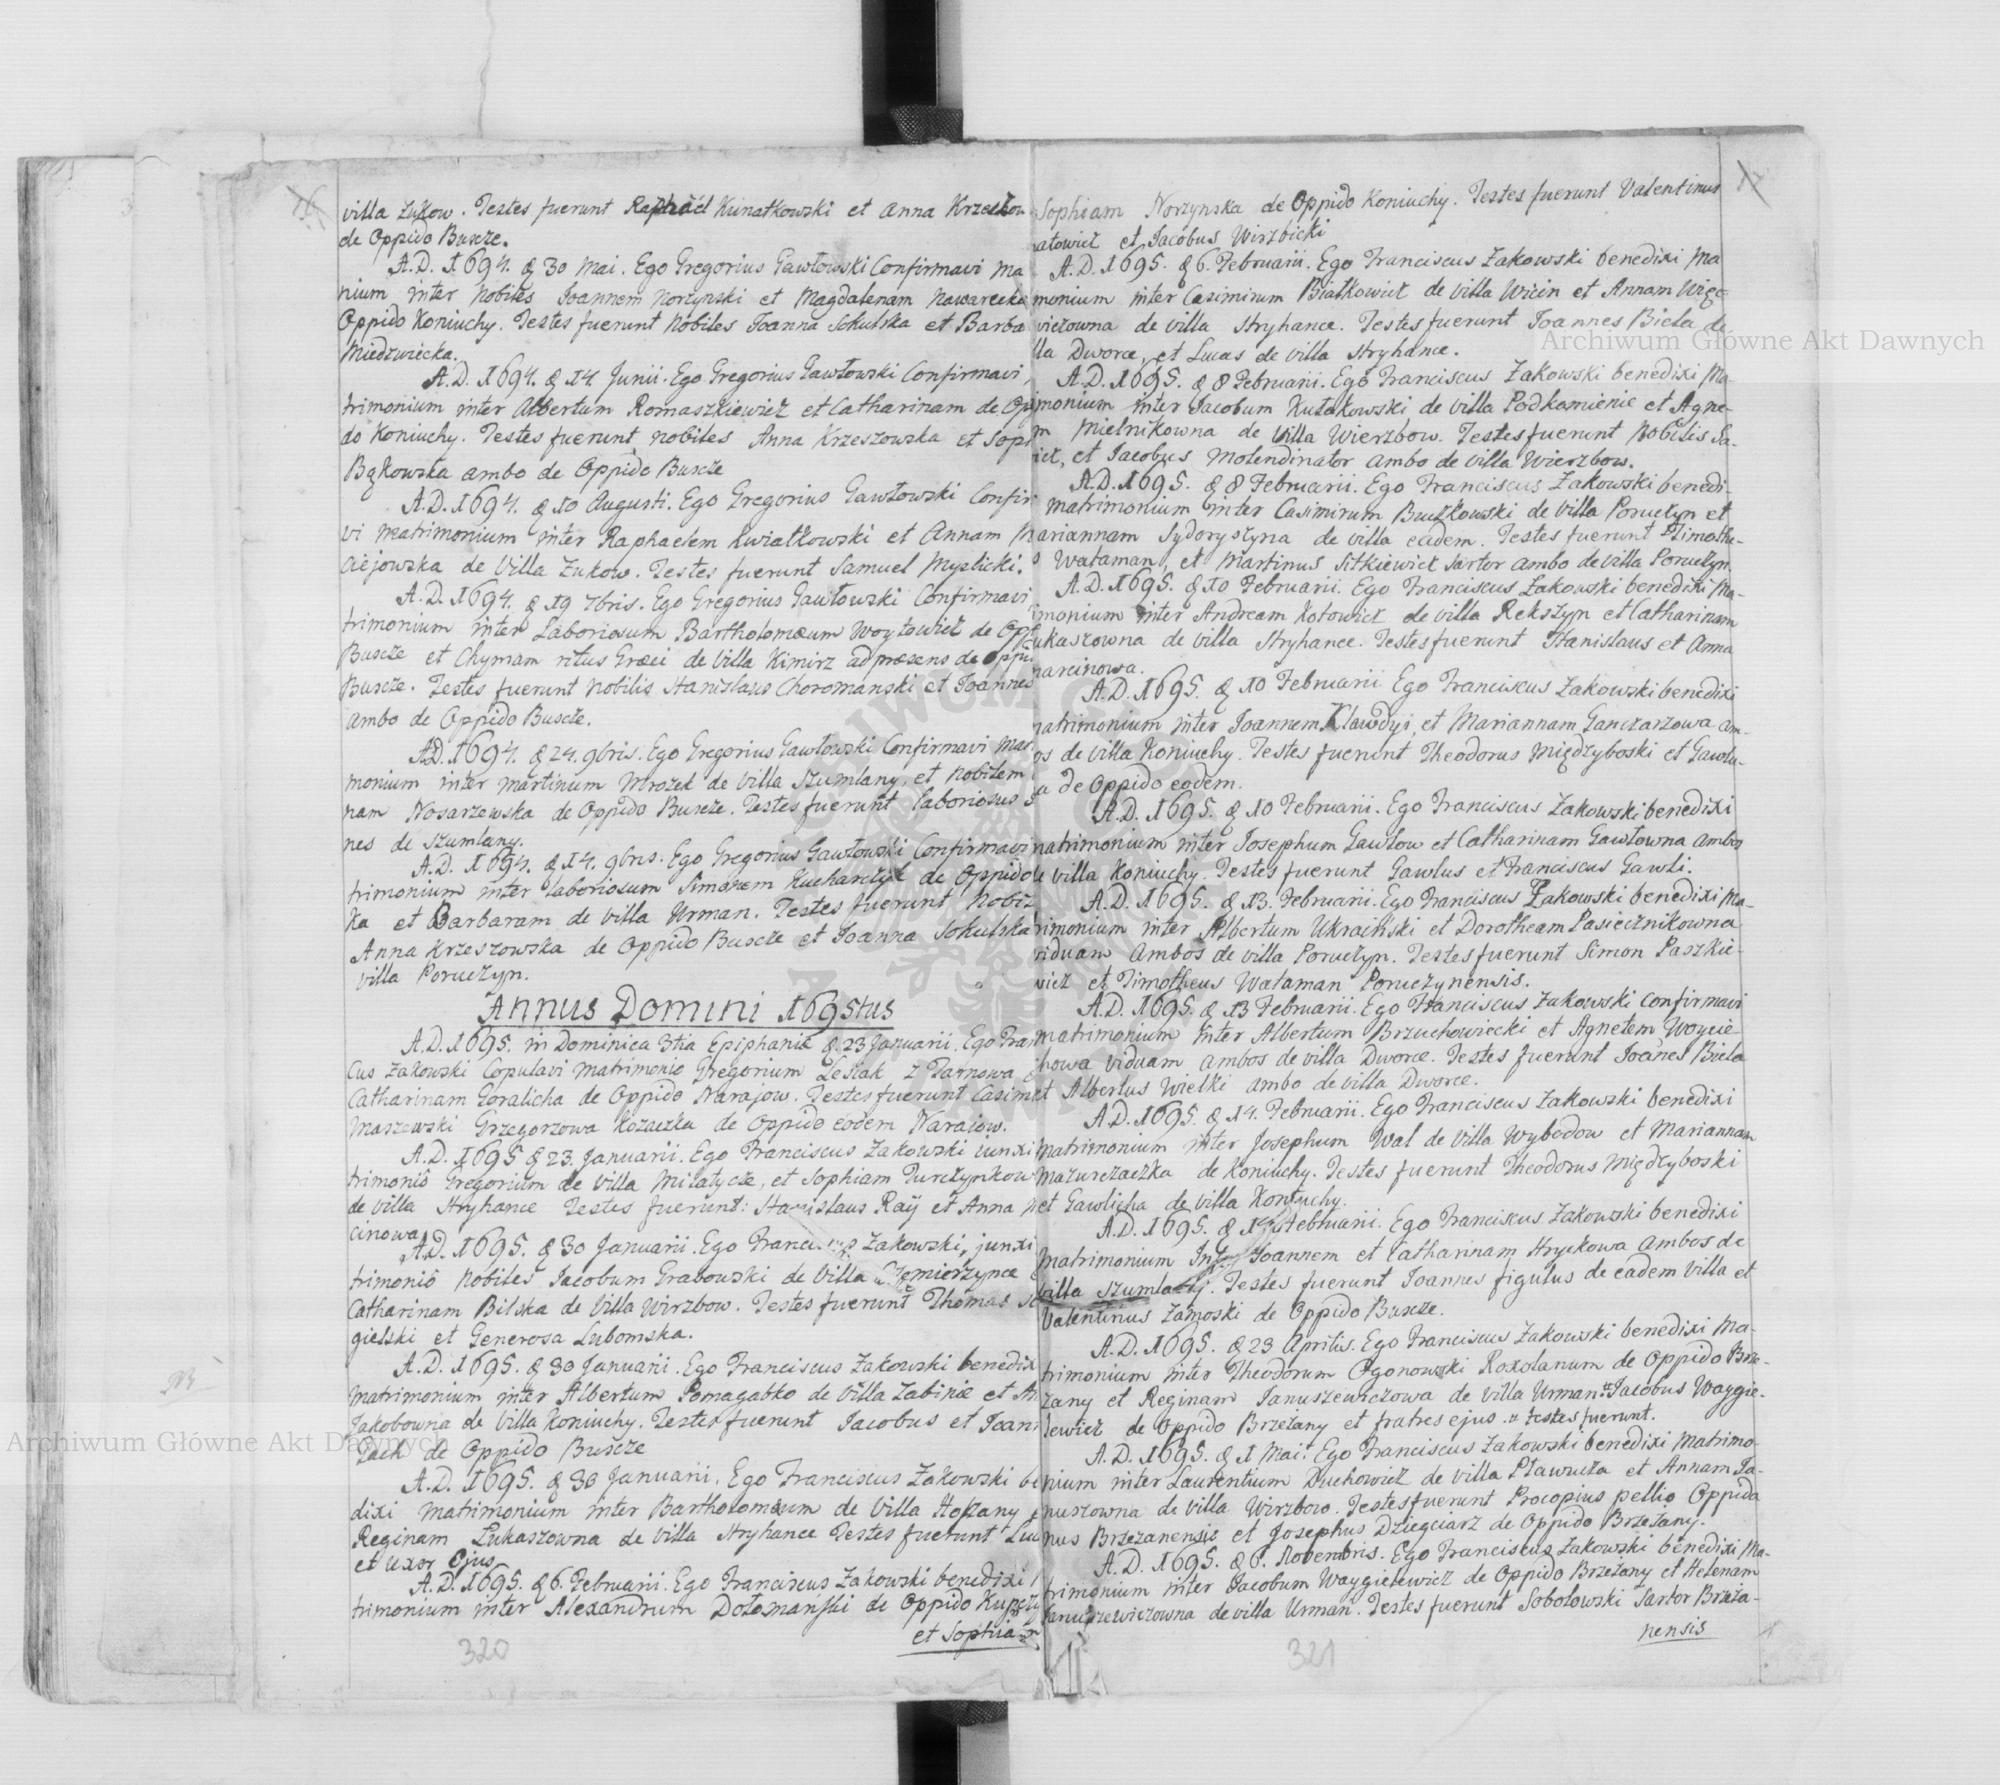 villa Zukow. Testes fuerunt Raphael Kunatkowski et Anna Krzeszow
de Oppido Buscze.
A.D. 1694. d 30 Mai. Ego Gregorius Gawłowski Confirmavi Ma
nium inter Nobiles Joannem Norzynski et Magdalenam Nawarecka
Oppido Koniuchy. Testes fuerunt Nobiles Joanna Sokulska et Barba
Miedzwiecka.
A.D. 1694. d 14. Junii. Ego Gregorius Gawłowski Confirmavi
trimonium inter Albertum Romaszkiewicz et Catharinam de Op
do Koniuchy. Testes fuerunt nobiles Anna Krzeszowska et Soph
Bąkowska ambo de Oppido Buscze
A.D. 1694. d 10 Augusti. Ego Gregorius Gawłowski Confir
vi matrimonium inter Raphaelem Kwiatkowski et Annam M
ciejowska de Villa Zukow. Testes fuerunt Samuel Myslicki.
A.D. 1694. d 19 7bris. Ego Gregorius Gawłowski Confirmavi
trimonium inter Laboriosum Bartholomæum Woytowicz de Opp
Buscze et Chymam ritus Græci de Villa Kimirz ad præsens de Oppi
Buscze. Testes fuerunt Nobilis Stanislaus Choromanski et Joannes
ambo de Oppido Buscze.
A.D. 1694. d 24. 9bris. Ego Gregorius Gawłowski Confirmavi Mat
monium inter Martinum Mrozek de Villa Szumlany, et Nobilem
nam Nosarzewska de Oppido Buscze. Testes fuerunt Laboriosus
nes de Szumlany.
A.D. 1694. d 14. 9bris. Ego Gregorius Gawłowski Confirmavi
trimonium inter laboriosum Simonem Kucharczyk de Oppido
ka et Barbaram de Villa Urman. Testes fuerunt Nobil
Anna Krzeszowska de Oppido Buscze et Joanna Sokulska
villa Poruczyn.
Annus Domini 1695tus
A.D. 1695. in Dominica 3tia Epiphaniæ d 23 Januarii. Ego Fran
cus Zakowski Copulavi Matrimonio Gregorium Lesiak z Tarnowa
Catharinam Goralicha de Oppido Narajow. Testes fuerunt Casim
Maszewski Grzegorzowa Kozaczka de Oppido eodem Narajow.
A.D. 1695 d 23. Januarii. Ego Franciscus Zakowski iunxi
trimoniô Gregorium de Villa Milatycze, et Sophiam Turczynkow
de Villa Stryhance Testes fuerunt: Stanislaus Raÿ et Anna M
cinowa.
A.D. 1695. d 30 Januarii. Ego Franciscus Zakowski, junxi
trimoniô Nobiles Jacobum Grabowski de Villa Ciemierzynce
Catharinam Bilska de Villa Wirzbow. Testes fuerunt Thomas
gielski et Generosa Lubomska.
A.D. 1695. d 30 Januarii. Ego Franciscus Zakowski benedix
Matrimonium inter Albertum Pomagabko de Villa Zabinie et An
Jakobowna de Villa Koniuchy. Testes fuerunt Jacobus et Joan
Pach de Oppido Buscze
A.D. 1695. d 30 Januarii. Ego Franciscus Zakowski be
dixi Matrimonium inter Bartholomæum de Villa Hołzany
Reginam Lukaszowna de Villa Stryhance Testes fuerunt Luc
et Uxor Ejus
A.D. 1695. d 6. Februarii. Ego Franciscus Zakowski benedixi
trimonium inter Alexandrum Dołomanski de Oppido
et Sophia=
320
Sophiam Norzynska de Oppido Koniuchy. Testes fuerunt Valentinus
natowicz et Jacobus Wirzbicki
A.D. 1695. d 6. Februarii. Ego Franciscus Zakowski benedixi Ma
monium inter Casimirum Białkowicz de Villa Wicin et Annam
wiczowna de Villa Stryhance. Testes fuerunt Joannes Biela de
lla Dworce, et Lucas de Villa Stryhance.
A.D. 1695. d 8 Februarii. Ego Franciscus Zakowski benedixi Ma-
monium inter Jacobum Kułakowski de Villa Podkamienie et Agne-
m Mielnikowna de Villa Wierzbow. Testes fuerunt Nobilis Sa-
icz, et Jacobus Molendinator Ambo de Villa Wierzbow.
A.D. 1695. d 8 Februarii. Ego Franciscus Zakowski benedi-
matrimonium inter Casimirum Buczkowski de Villa Poruczyn et
ariannam Sydoryszyna de Villa eadem. Testes fuerunt Timothe-
s Wataman, et Martinus Sitkiewicz Sartor Ambo de Villa Poruczyn.
A.D. 1695. d 10 Februarii. Ego Franciscus Zakowski benedixi Ma-
imonium inter Andream Kotowicz de Villa Rekszyn et Catharinam
ukaszowna de Villa Stryhance. Testes fuerunt Stanislaus et Anna
marcinowa.
A.D. 1695. d 10 Februarii Ego Franciscus Zakowski benedixi
matrimonium inter Joannem Klawdyi, et Mariannam Ganczarzowa am-
os de Villa Koniuchy. Testes fuerunt Theodorus Międzyboski et Gawlu-
a de Oppido eodem.
A.D. 1695. d 10 Februarii. Ego Franciscus Zakowski benedixi
matrimonium inter Josephum Gawlow et Catharinam Gawlowna Ambos
de Villa Koniuchy. Testes fuerunt Gawlus et Franciscus Gawli.
A.D. 1695. d 13. Februarii. Ego Franciscus Zakowski benedixi Ma-
rimonium inter Albertum Ukraiński et Dorotheam Pasiecznikowna
viduam Ambos de Villa Poruczyn. Testes fuerunt Simon Paszkie-
wicz et Timotheus Wataman Poruczynensis.
A.D. 1695. d 13 Februarii. Ego Franciscus Zakowski Confirmavi
matrimonium inter Albertum Brzuchowiecki et Agnetem Woycie-
howa Viduam Ambos de Villa Dworce. Testes fuerunt Joañes Biela
et Albertus Wielki ambo de Villa Dworce.
A.D. 1695. d 14. Februarii. Ego Franciscus Zakowski benedixi
Matrimonium inter Josephum Wal de Villa Wybodow et Mariannam
Mazurczaczka de Koniuchy. Testes fuerunt Theodorus Międzyboski
et Gawlicha de Villa Koniuchy.
A.D. 1695. d Februarii. Ego Franciscus Zakowski benedixi
Matrimonium Inter Joannem et Catharinam Stryckowa Ambos de
Villa Szumlany. Testes fuerunt Joannes figulus de eadem Villa et
Valentinus Zamoski de Oppido Buscze.
A.D. 1695. d 23 Aprilis. Ego Franciscus Zakowski benedixi Ma-
trimonium inter Theodorum Ogonowski Roxolanum de Oppido Brze-
zany et Reginam Januszewiczowa de Villa Urman. Jacobus Waygie-
lewicz de Oppido Brzeżany et fratres ejus testes fuerunt.
A.D. 1695. d 1 Mai. Ego Franciscus Zakowski benedixi Matrimo-
nium inter Laurentium Duchowicz de Villa Pławucza et Annam Ja-
nuszowna de Villa Wirzbow. Testes fuerunt Procopius pellio Oppida
nus Brzeżanensis et Josephus Dziegciarz de Oppido Brzeżany.
A.D. 1695. d 6. Novembris. Ego Franciscus Zakowski benedixi Ma-
trimonium inter Jacobum Waygielewicz de Oppido Brzeżany et Helenam
Januszewiczowna de Villa Urman. Testes fuerunt Sobolowski Sartor Brzeża-
nensis
321
Archiwum Główne Akt Dawnych
Archiwum Główne Akt Dawnych